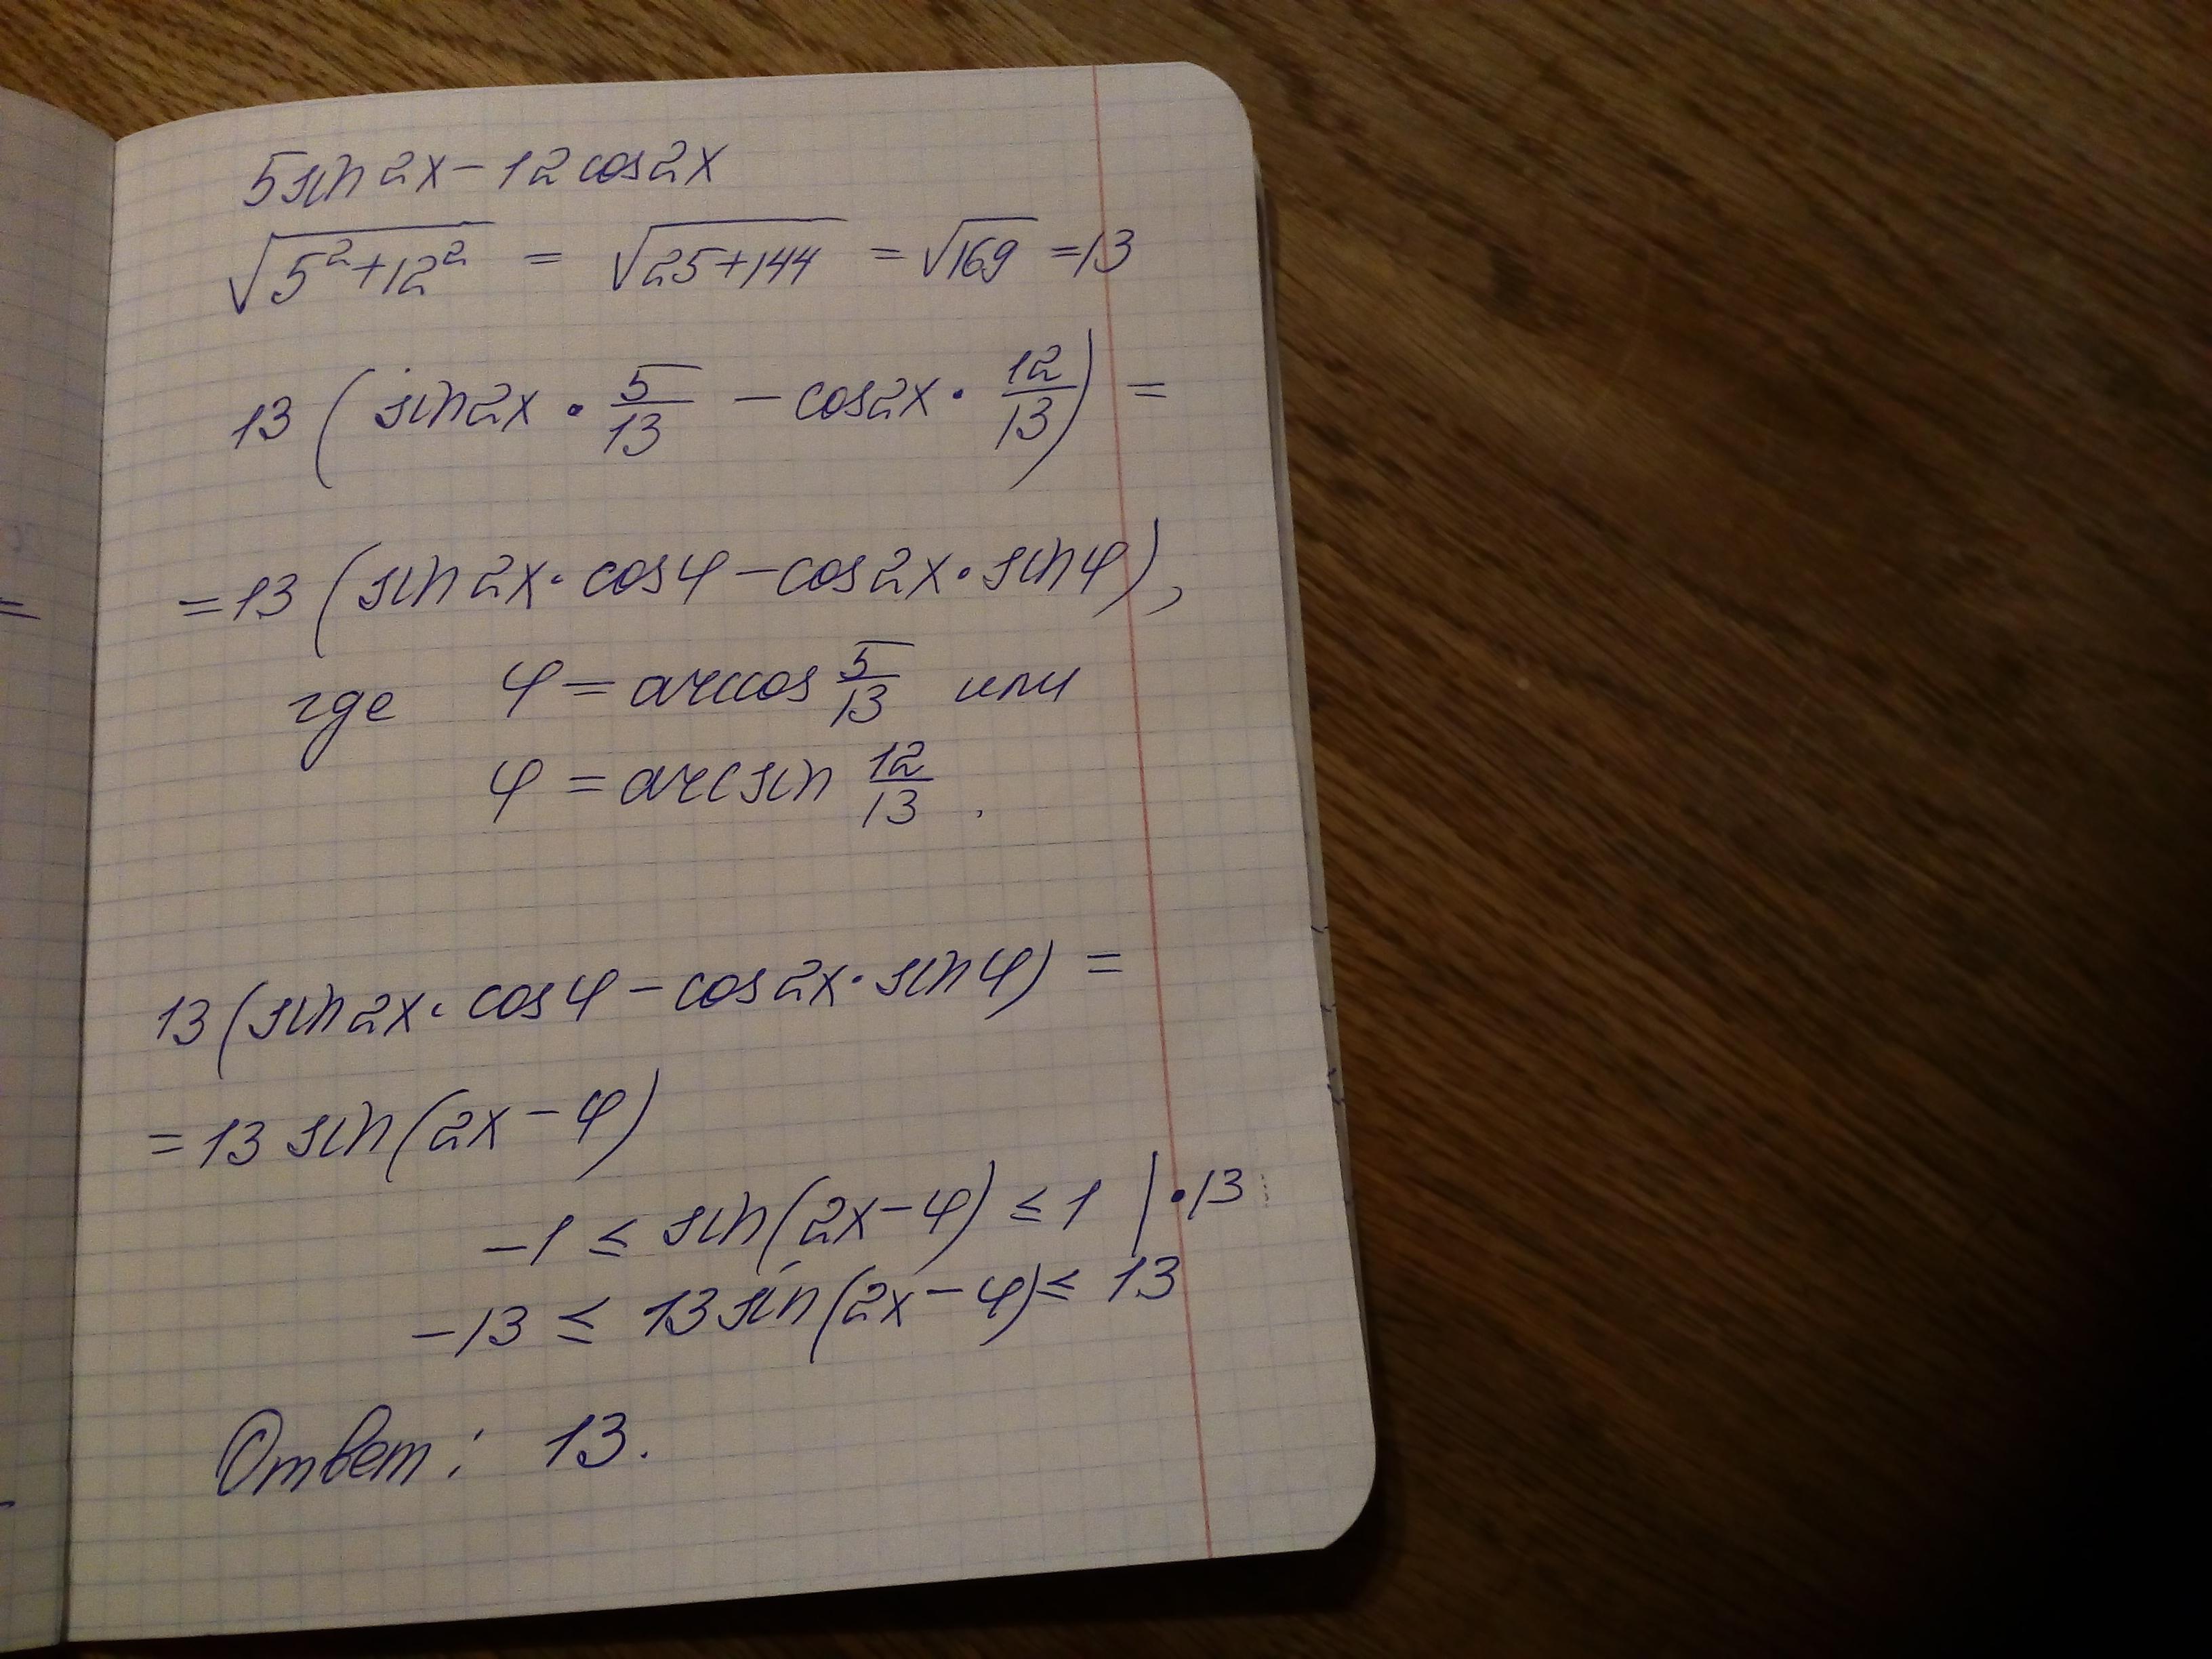 5sin2x-12cos2x
√(5²+12²) = √(25+144) = √169 = 13
13(sin2x·5/13 - cos2x·12/13) =
=13(sin2x·cosφ-cos2x·sinφ),
где φ=arccos 5/13 или
φ=arcsin 12/13.
13(sin2x·cosφ-cos2x·sinφ) =
=13 sin(2x-φ)
-1 ≤ sin(2x-φ) ≤ 1 |·13
-13 ≤ 13sin(2x-φ) ≤ 13
Ответ: 13.